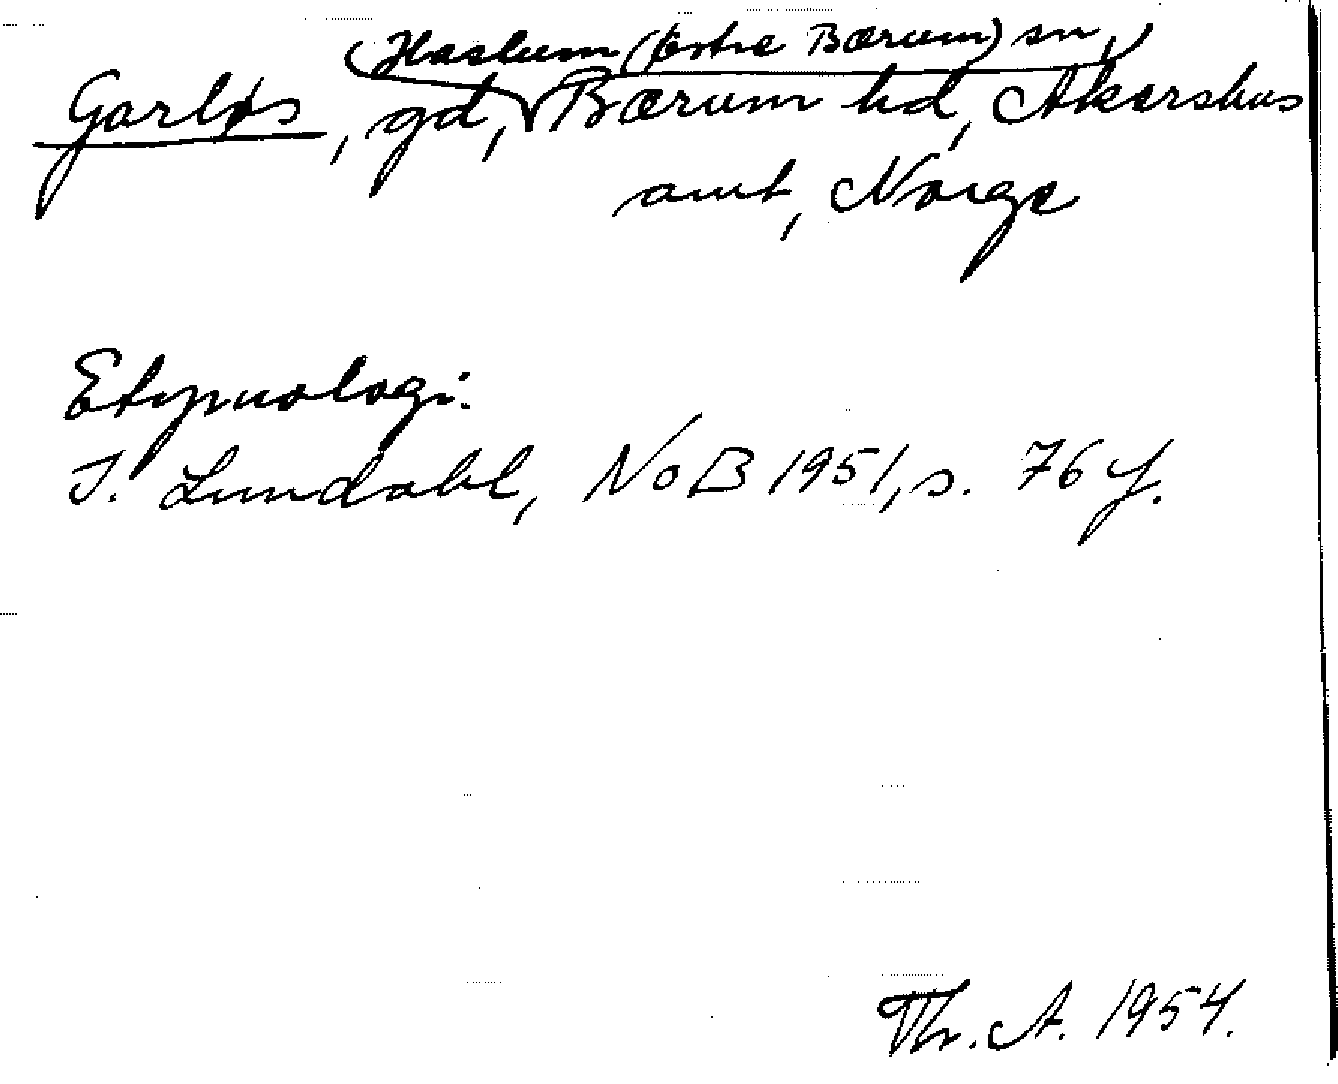 (Haslum (Østre Bærum) sn,)
Garløs, gd, Bærum hd, Akershus
amt, Norge
Etymologi:
I. Lundahl, NoB 1951, s. 76 f.
Th. A. 1954.